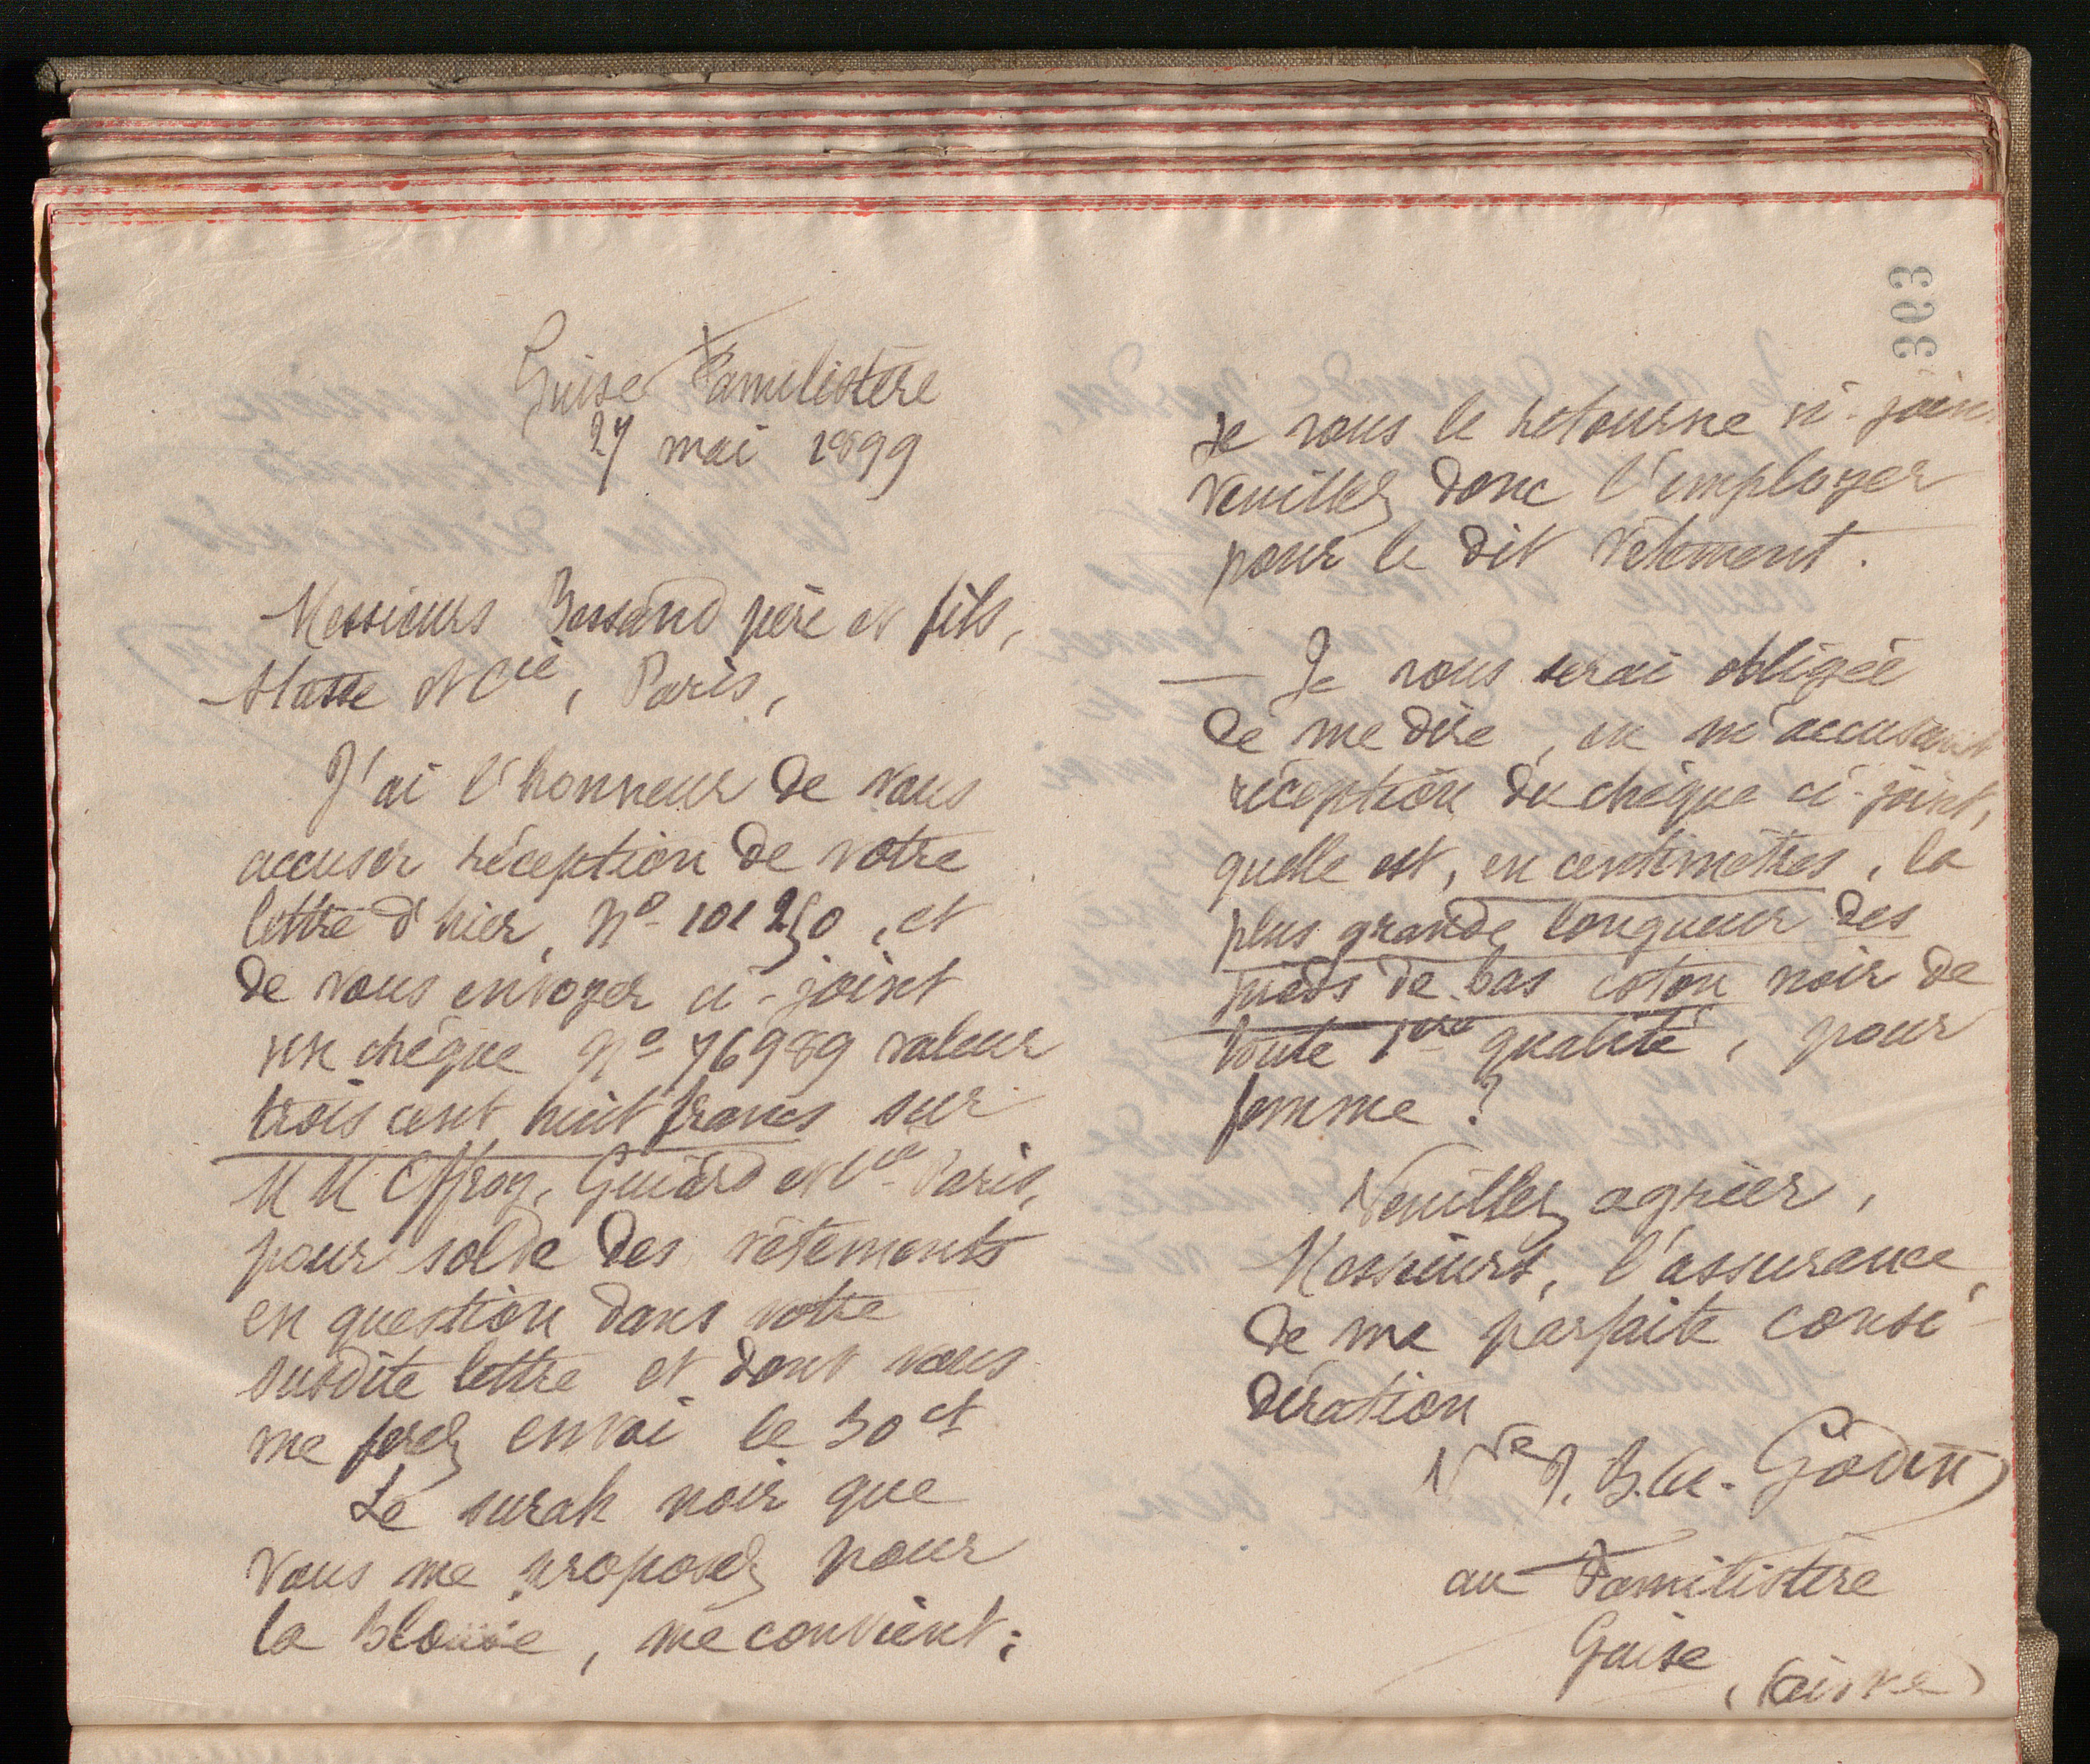 Guise Familistère
27 mai 1899
Messieurs Bessand père et fils,
Stasse et Cie, Paris,
J'ai l'honneur de vous
accuser réception de votre
lettre d'hier, No 101250, et
de vous envoyer ci-joint
un chèque No 76989 valeur
trois cent huit francs sur
MM Offroy, Guiard et Cie Paris,
pour solde des vêtements
en question dans votre
susdite lettre et dont vous
me ferez envoi le 30 ct
Le surah noir que
vous me proposez pour
la Blouse, me convient;
363
je vous le retourne ci-joint
veuillez donc l'employer
pour le dit vêtement.
— Je vous serai obligée
de me dire, en m'accusant
réception du chèque ci-joint,
quelle est, en centimètres, la
plus grande longueur des
pieds de bas coton noir de
toute 1ère qualité, pour
femme ?
Veuillez agréer,
Messieurs, l'assurance
de ma parfaite consi-
dération
Vve J. B. A. Godin
au Familistère
Guise
(Aisne)